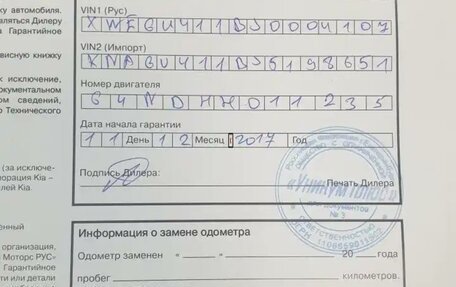 ку автомобиля.
аляться Дилеру
а Гарантийное
висную книжку
к исключение,
окументальном
ом сведений,
о Технического
(за исключе-
орация Kia –
лей Kia.
енный
организация,
Моторс РУС»
Гарантийное
ти или детали
VIN1 (Рус)
XWEGU411BJ0004107
VIN2 (Импорт)
KNAGU411BJ5198651
Номер двигателя
G4NDHH011235
Дата начала гарантии
11 День 12 Месяц 2017 Год
Подпись Дилера:
Печать Дилера
«Уникум плюс»
для документов
№ 3
Информация о замене одометра
Одометр заменен « » 20 года
пробег километров.